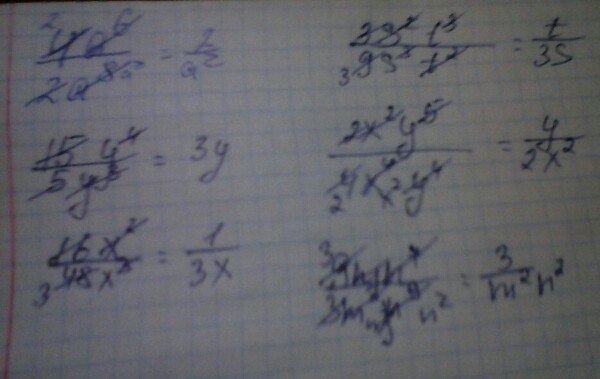 4a⁶/2a⁸ = 2/a²
3s² t³/9s³ t² = t/3s
15 y⁴/5 y³ = 3y
2x² y⁵/4x⁴ y⁴ = y/2x²
16 x²/48 x³ = 1/3x
= 3/m² n²